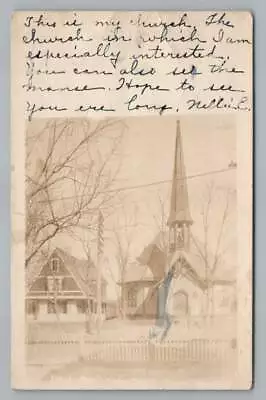 This is my church. The
church in which I am
especially interested.
You can also see the
manse. Hope to see
you ere long. Nellie C.